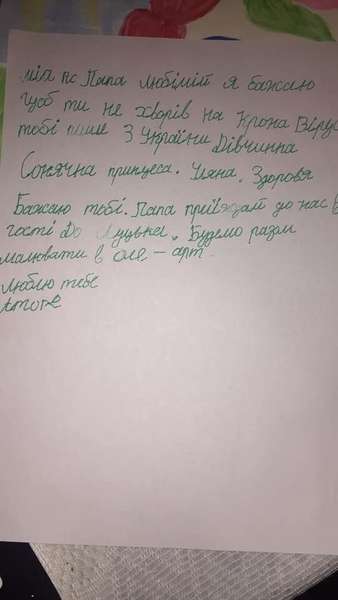 Папа любімій я бажаю
щоб ти не хворів на Крона Вірус
тобі пише З України Дівчинна
Сонячна принцеса. Уляна. Здоровя
Бажаю тобі. Папа приїжджай до нас в
гості До Луцька. Будемо разом
малювати в оле-арт.
люблю тебе
Amore